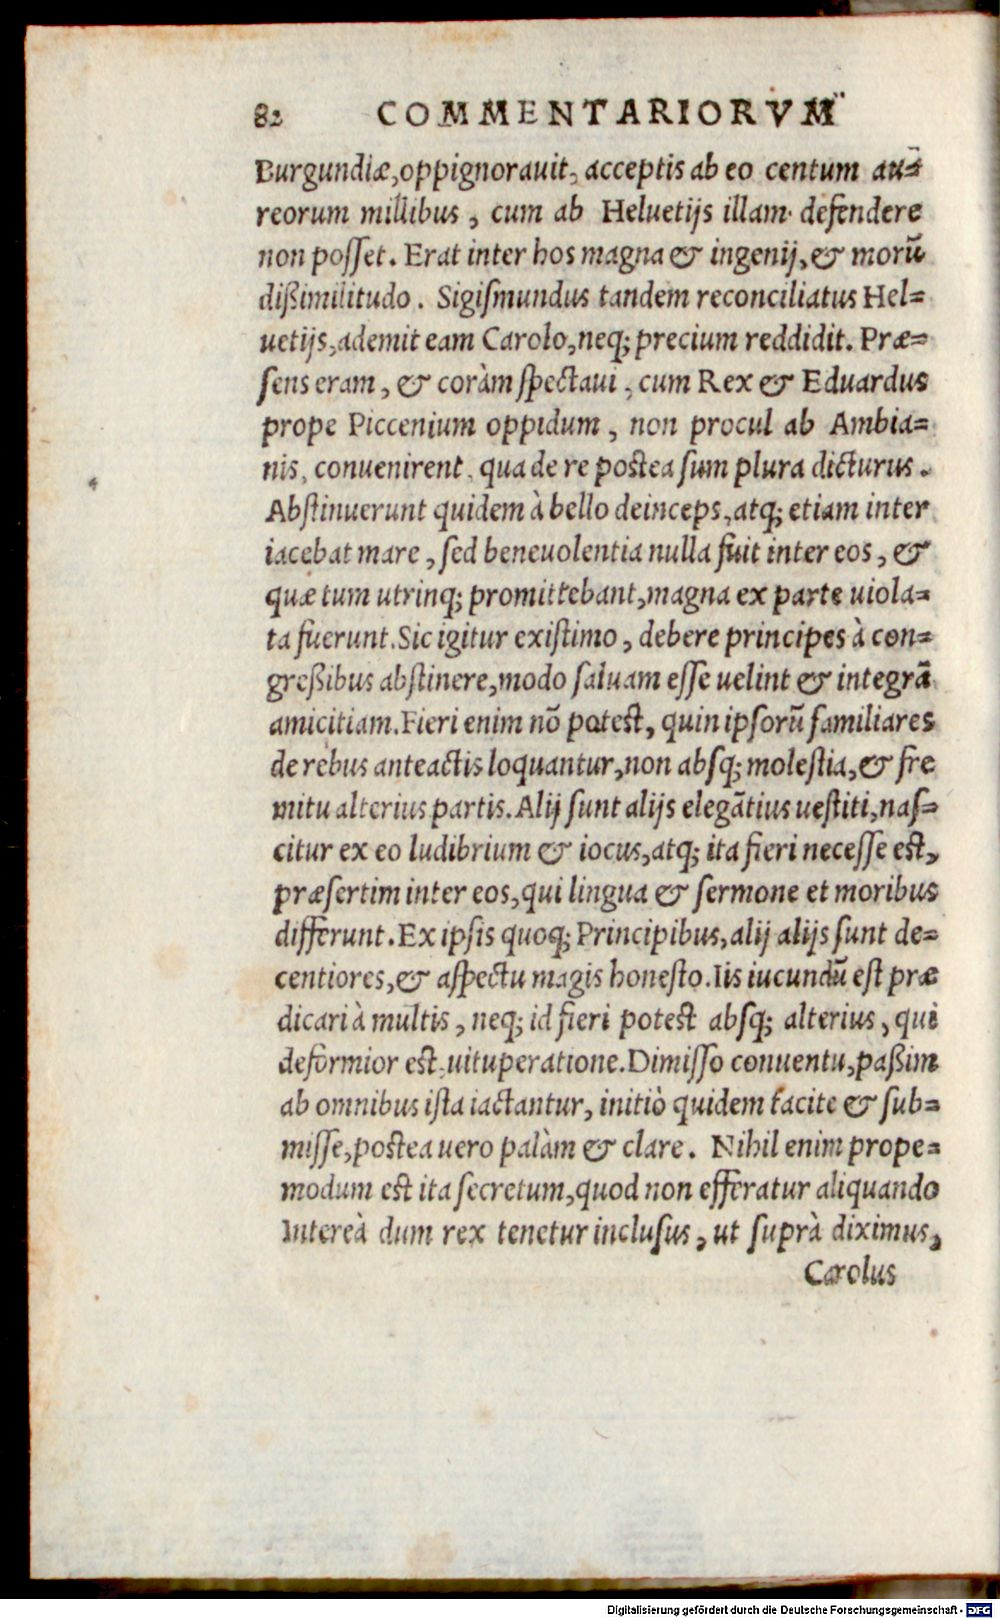 82 COMMENTARIORVM
Burgundiæ, oppignorauit, acceptis ab eo centum au=
reorum millibus, cum ab Heluetijs illam defendere
non posſet. Erat inter hos magna & ingenij, & morū
dißimilitudo. Sigiſmundus tandem reconciliatus Hel=
uetijs, ademit eam Carolo, neq; precium reddidit. Præ=
ſens eram, & coràm ſpectaui, cum Rex & Eduardus
prope Piccenium oppidum, non procul ab Ambia=
nis, conuenirent, qua de re postea ſum plura dicturus.
Abſtinuerunt quidem à bello deinceps, atq; etiam inter
iacebat mare, ſed beneuolentia nulla fuit inter eos, &
quæ tum utrinq; promittebant, magna ex parte uiola=
ta fuerunt. Sic igitur exiſtimo, debere principes à con=
greßibus abſtinere, modo ſaluam eſſe uelint & integrā
amicitiam. Fieri enim nō potest, quin ipſorū familiares
de rebus anteactis loquantur, non abſq; moleſtia, & fre
mitu alterius partis. Alij ſunt alijs elegātius ueſtiti, naſ=
citur ex eo ludibrium & iocus, atq; ita fieri neceſſe est,
præſertim inter eos, qui lingua & ſermone et moribus
differunt. Ex ipſis quoq; Principibus, alij alijs ſunt de=
centiores, & aſpectu magis honeſto. Iis iucundū eſt præ
dicari à multis, neq; id fieri potest abſq; alterius, qui
deformior est, uituperatione. Dimiſſo conuentu, paßim
ab omnibus iſta iactantur, initiò quidem tacite & ſub=
miſſe, postea uero palàm & clare. Nihil enim prope=
modum est ita ſecretum, quod non efferatur aliquando
Intereà dum rex tenetur incluſus, ut ſuprà diximus,
Carolus
Digitalisierung gefördert durch die Deutsche Forschungsgemeinschaft - DFG